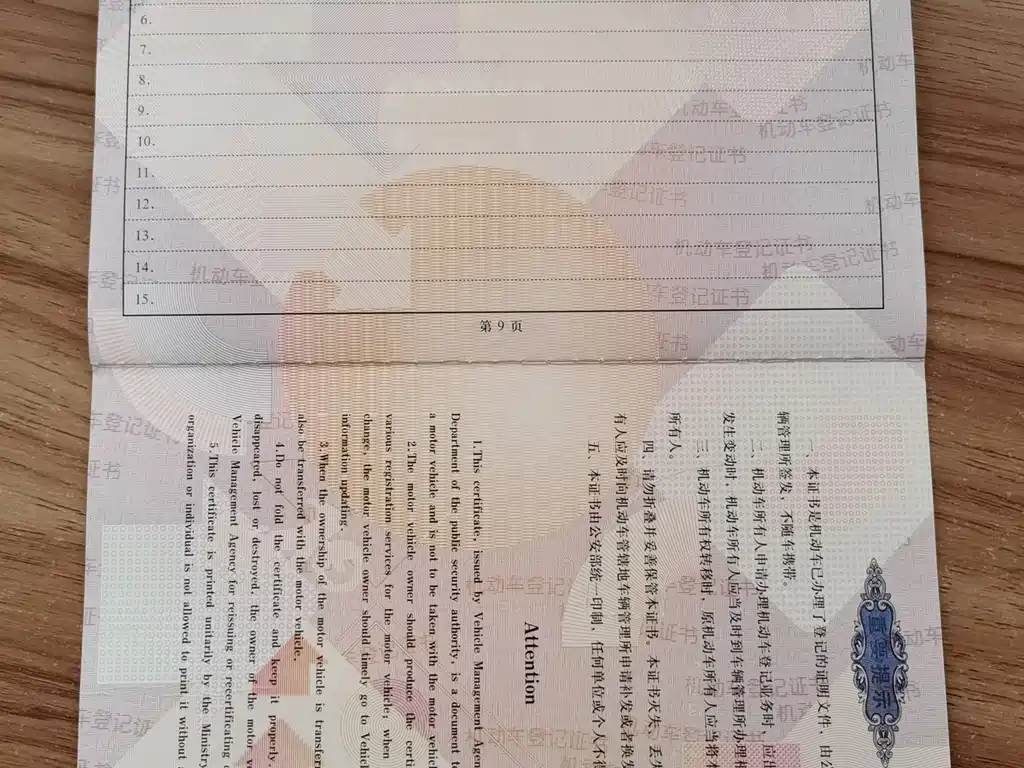 6.
7.
8.
9.
10.
11.
12.
13.
14.
15.
第 9 页
重要提示
一、本证书是机动车已办理了登记的证明文件，由公
辆管理所签发，不随车携带。
二、机动车所有人申请办理机动车登记业务时，应出
发生变动时，机动车所有人应当及时到车辆管理所办理相
三、机动车所有权转移时，原机动车所有人应当将本
所有人。
四、请勿折叠并妥善保管本证书。本证书灭失、丢失
有人应及时向机动车管辖地车辆管理所申请补发或者换发
五、本证书由公安部统一印制，任何单位或个人不得
Attention
1.This certificate, issued by Vehicle Management Agen
Department of the public security authority, is a document to
a motor vehicle and is not to be taken with the motor vehicl
2.The motor vehicle owner should produce the certi
various registration services for the motor vehicle; when
change, the motor vehicle owner should timely go to Vehicl
information updating.
3.When the ownership of the motor vehicle is transfer
also be transferred with the motor vehicle.
4.Do not fold the certificate and keep it properly.
disappeared, lost or destroyed, the owner of the motor ve
Vehicle Management Agency for reissuing or recertificating
5.This certificate is printed unitarily by the Ministry
organization or individual is not allowed to print it without
机动车登记证书
机动车登记证书
机动车登记证书
机动车登记证书